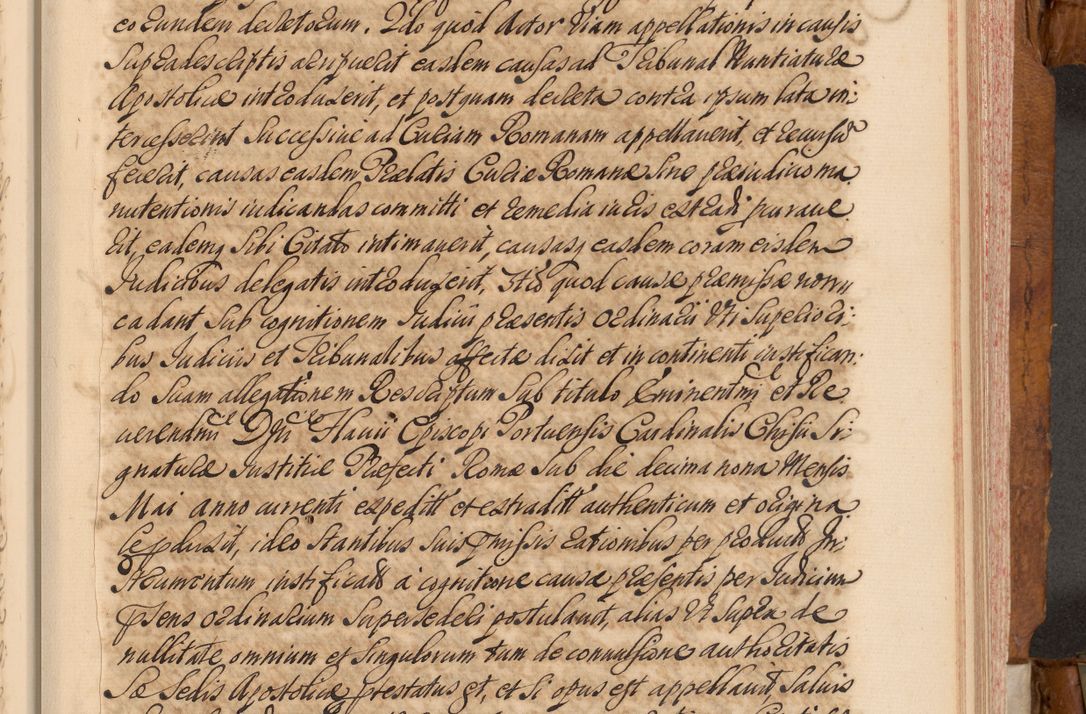 eorundem decretorum. 2do quod Actor viam appellationis in causis
supradescriptis arripuerit easdem causas ad Tribunal Nuntiaturæ
Apostolicæ introduxerit, et postquam decreta contra ipsum lata in:
tercesserint successive ad Curiam Romanam appellaverit, et recursũ
fecerit, causas easdem Prælatis Curiæ Romanæ sine præiudicio ma
nutentionis iudicandas committi et remedia iuris extradi purave
rit, eademq sibi Citato intimaverit, causasq easdem coram eisdem
Iudicibus delegatis introduxerit, 3tiõ quod causæ præmissæ non
cadant sub cognitionem Iudicii præsentis ordinarii uti superiori:
bus Iudiciis et Tribunalibus affectæ dixit et in continenti iustifican:
do suam allegationem Rescriptum sub titulo Eminentmi et Re
verendmi Dni Flavii Episcopi Portuensis Cardinalis Ghisii Si
gnaturæ Iustitiæ Præfecti Romæ sub die decima nona Mensis
Mai anno currenti expeditt et extraditt authenticum et origina
le pduxit, ideo stantibus suis pmissis rationibus per productũ In:
strumentum iustificatis a cognitione causæ præsentis per Iudicium
psens ordinarium supersederi postulavit, alias ut supra de
nullitate omnium et singulorum tam de convulsione authoritatis
Sæ Sedis Apostolicæ prestatus est, et si opus est appellavit salvis